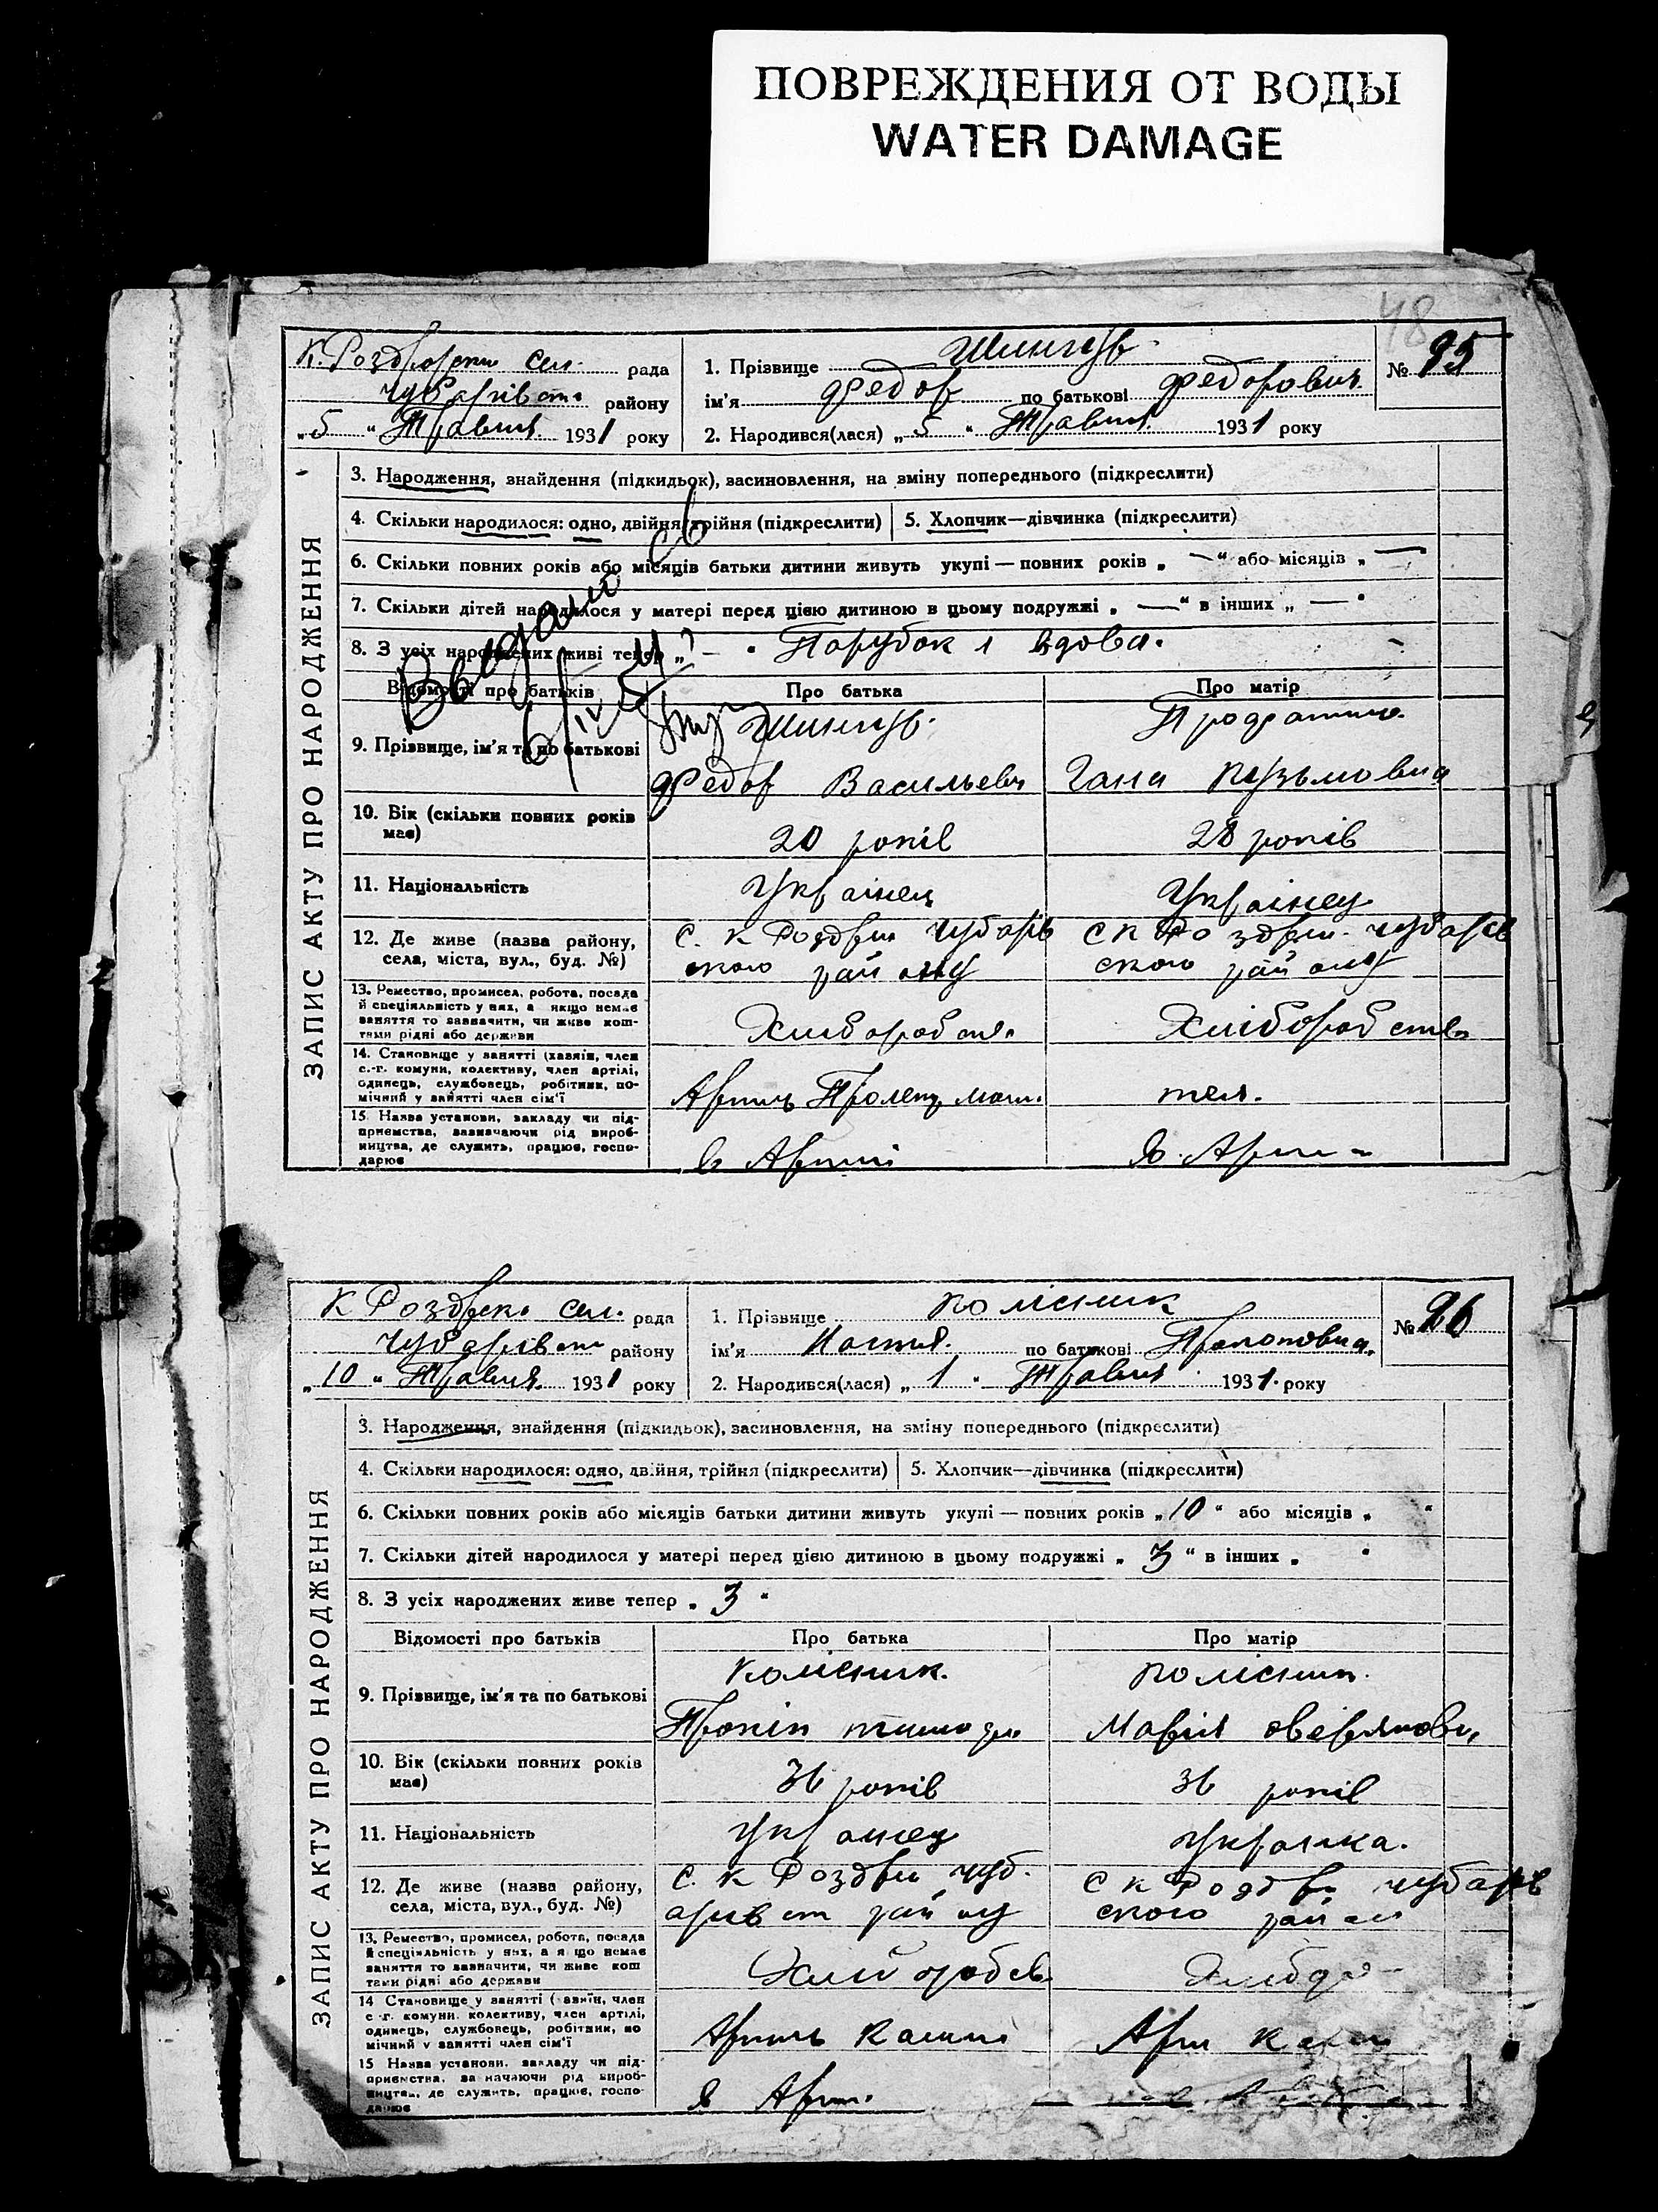 ПОВРЕЖДЕНИЯ ОТ ВОДЫ
WATER DAMAGE
48
К. Роздорски сел. рада
Чубарівськ району
„5“ Травня 1931 року
1. Прізвище
ім'я Федор по батькові Федорович
2. Народився(лася) „5“ Травня 1931 року
№ 95
ЗАПИС АКТУ ПРО НАРОДЖЕННЯ
3. Народження, знайдення (підкидьок), засиновлення, на зміну попереднього (підкреслити)
4. Скільки народилося: одно, двійня, трійня (підкреслити)
5. Хлопчик—дівчинка (підкреслити)
6. Скільки повних років або місяців батьки дитини живуть укупі — повних років „ — “ або місяців „ —
7. Скільки дітей народилося у матері перед цією дитиною в цьому подружжі „ — “ в інших „ — “
8. З усіх народжених живі тепер „ — “ Парубок і вдова.
Відомості про батьків
Про батька
Про матір
9. Прізвище, ім'я та по батькові
Федор Васильевич
Гана Кузьмовна
10. Вік (скільки повних років має)
20 років
28 років
11. Національність
Українец
Українец
12. Де живе (назва району, села, міста, вул., буд. №)
С. К Роздри Чубарів
ского району
С К Роздри. Чубарів
ского району
13. Ремество, промисел, робота, посада
й спеціяльність у них, а якщо немає
заняття то зазначити, чи живе кош-
тами рідні або держави
Хлиборобств
Хлібороб ств
14. Становище у занятті (хазяїн, член
с.-г. комуни, колективу, член артілі,
одинець, службовець, робітник, по-
мічний у занятті член сім'ї
Артиль
15. Назва установи, закладу чи під-
приємства, зазначаючи рід вироб-
ництва, де служить, працює, госпо-
дарює
В Артилі
В. Арти
К Роздрск. сел. рада
Чубарівськ району
„10“ Травня. 1931 року
1. Прізвище Колісник
ім'я Настя. по батькові Прокоповна.
2. Народився(лася) „1“ Травня 1931. року
№ 96
ЗАПИС АКТУ ПРО НАРОДЖЕННЯ
3. Народження, знайдення (підкидьок), засиновлення, на зміну попереднього (підкреслити)
4. Скільки народилося: одно, двійня, трійня (підкреслити)
5. Хлопчик—дівчинка (підкреслити)
6. Скільки повних років або місяців батьки дитини живуть укупі — повних років „10“ або місяців „ “
7. Скільки дітей народилося у матері перед цією дитиною в цьому подружжі „3“ в інших „ “
8. З усіх народжених живе тепер „3“
Відомості про батьків
Про батька
Про матір
9. Прізвище, ім'я та по батькові
Колісник.
Прокіп
Колісник.
Марія
10. Вік (скільки повних років має)
36 років
36 років
11. Національність
Українец
Українка.
12. Де живе (назва району, села, міста, вул., буд. №)
С. К Роздри Чуб.
арівськ району
С К Роздр. Чубарів
ского район
13. Ремество, промисел, робота, посада
й спеціяльність у них, а якщо немає
заняття то зазначити, чи живе кош
тами рідні або держави
Хлиборобств
14 Становище у занятті (хазяїн, член
с-г. комуни, колективу, член артілі,
одинець, службовець, робітник, по
мічний у занятті член сім'ї
Артиль
15 Назва установи, закладу чи під-
приємства, зазначаючи рід вироб-
ництва, де служить, працює, госпо-
дарює
В Арти.